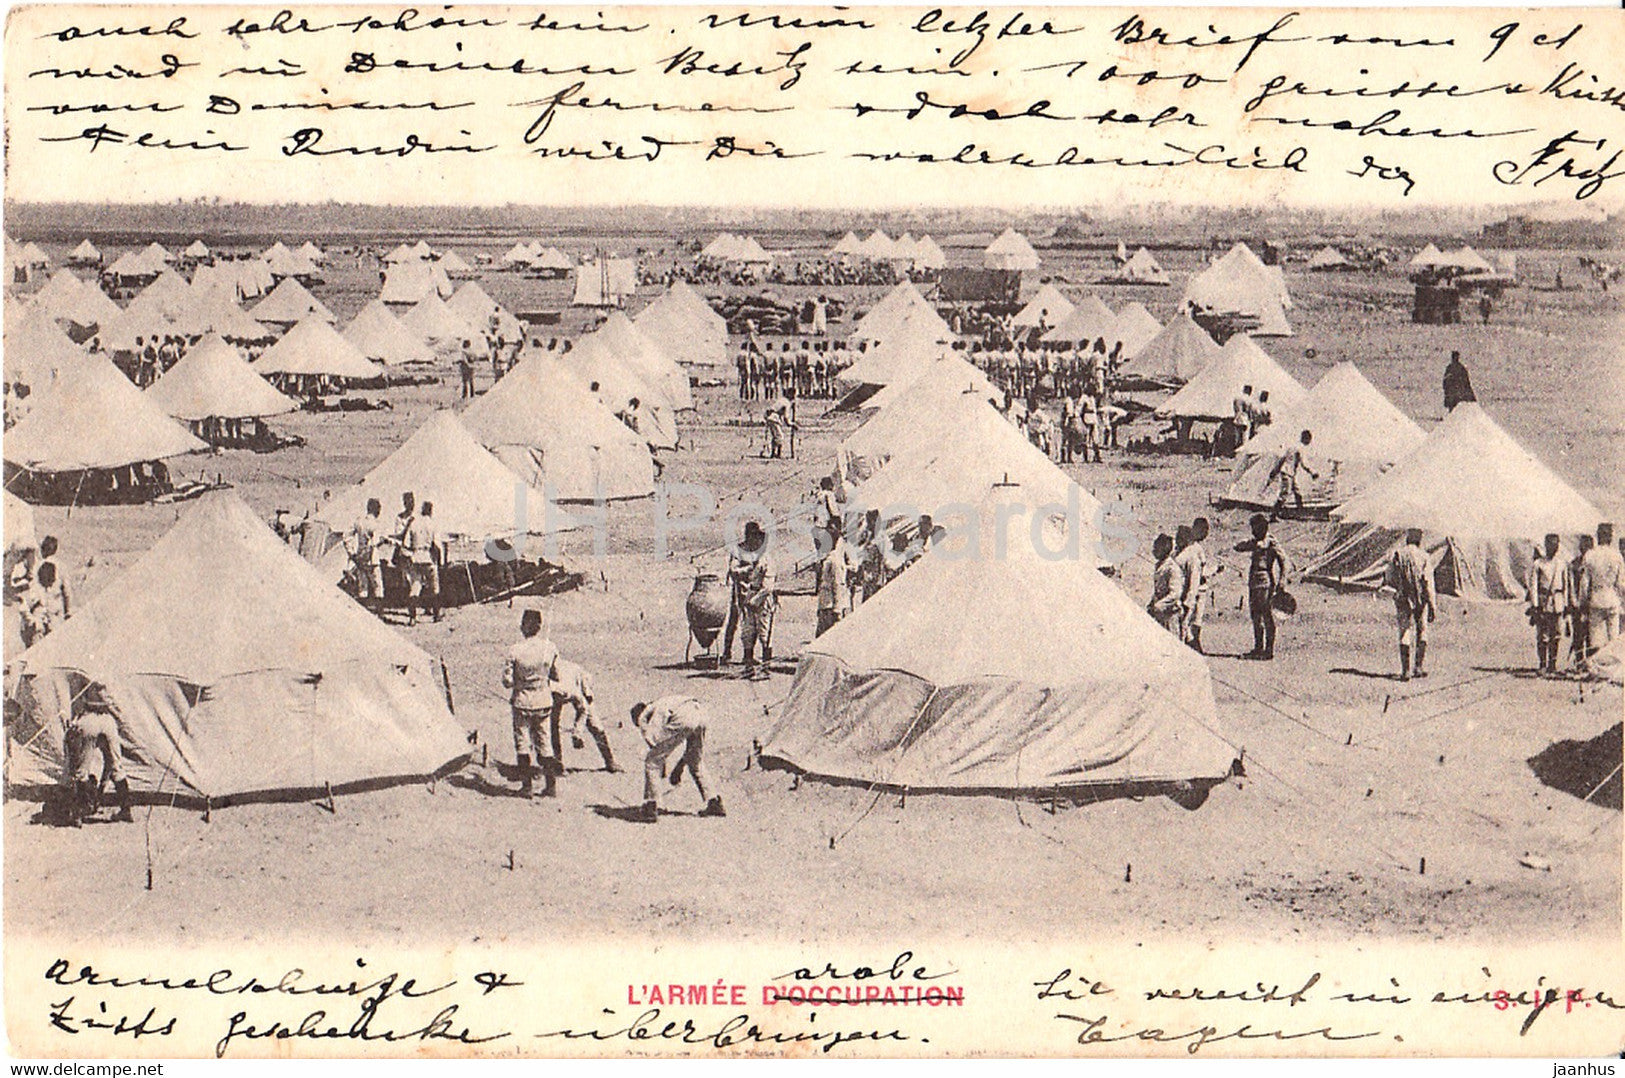 auch sehr schön sein. Mein letzter Brief vom 9 ct
wird in Deinem Besitz sein. 1000 grüsse & Küsse
von Deinem fernen & doch sehr nahen Fritz
Flein Rudin wird Dir wahrscheinlich die
JH Postcards
armelschürze & L'ARMÉE D'OCCUPATION arabe Sie vereist in einigen S. i. P.
Zists geschenke überbringen. Tagen.
www.delcampe.net
jaanhus